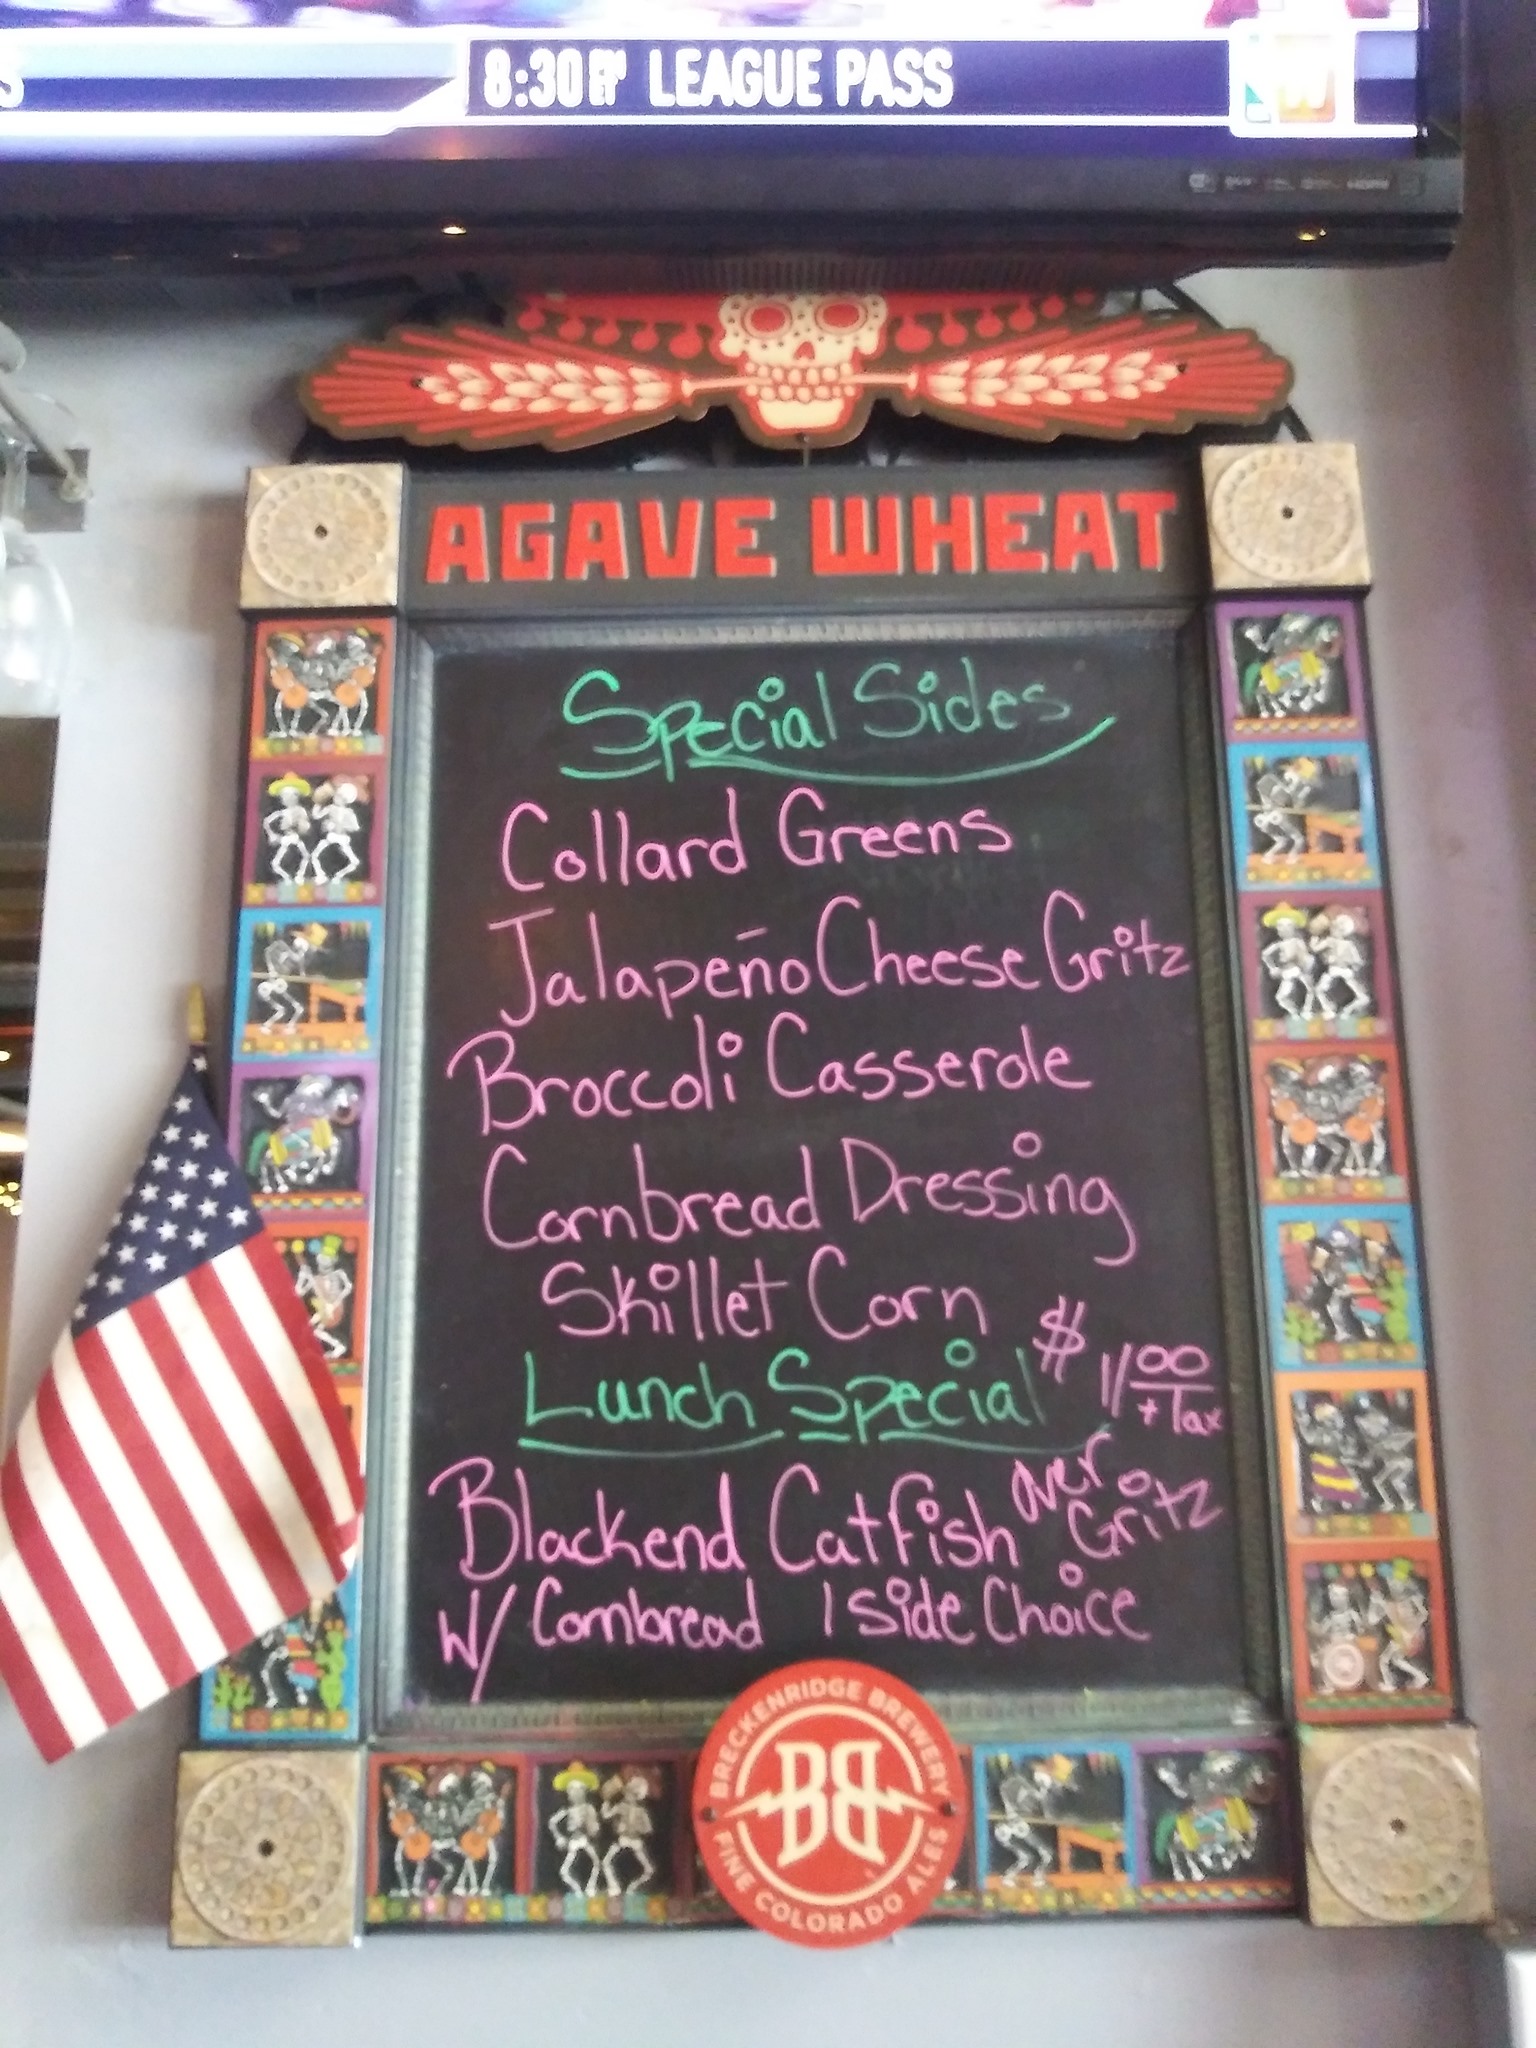 8:30PM LEAGUE PASS
AGAVE WHEAT
Special Sides
Collard Greens
Jalapeño Cheese Gritz
Broccoli Casserole
Cornbread Dressing
Skillet Corn
Lunch Special $11.00 + Tax
Blackend Catfish over Gritz
W/ Cornbread 1 side Choice
BRECKENRIDGE BREWERY
BB
FINE COLORADO ALES